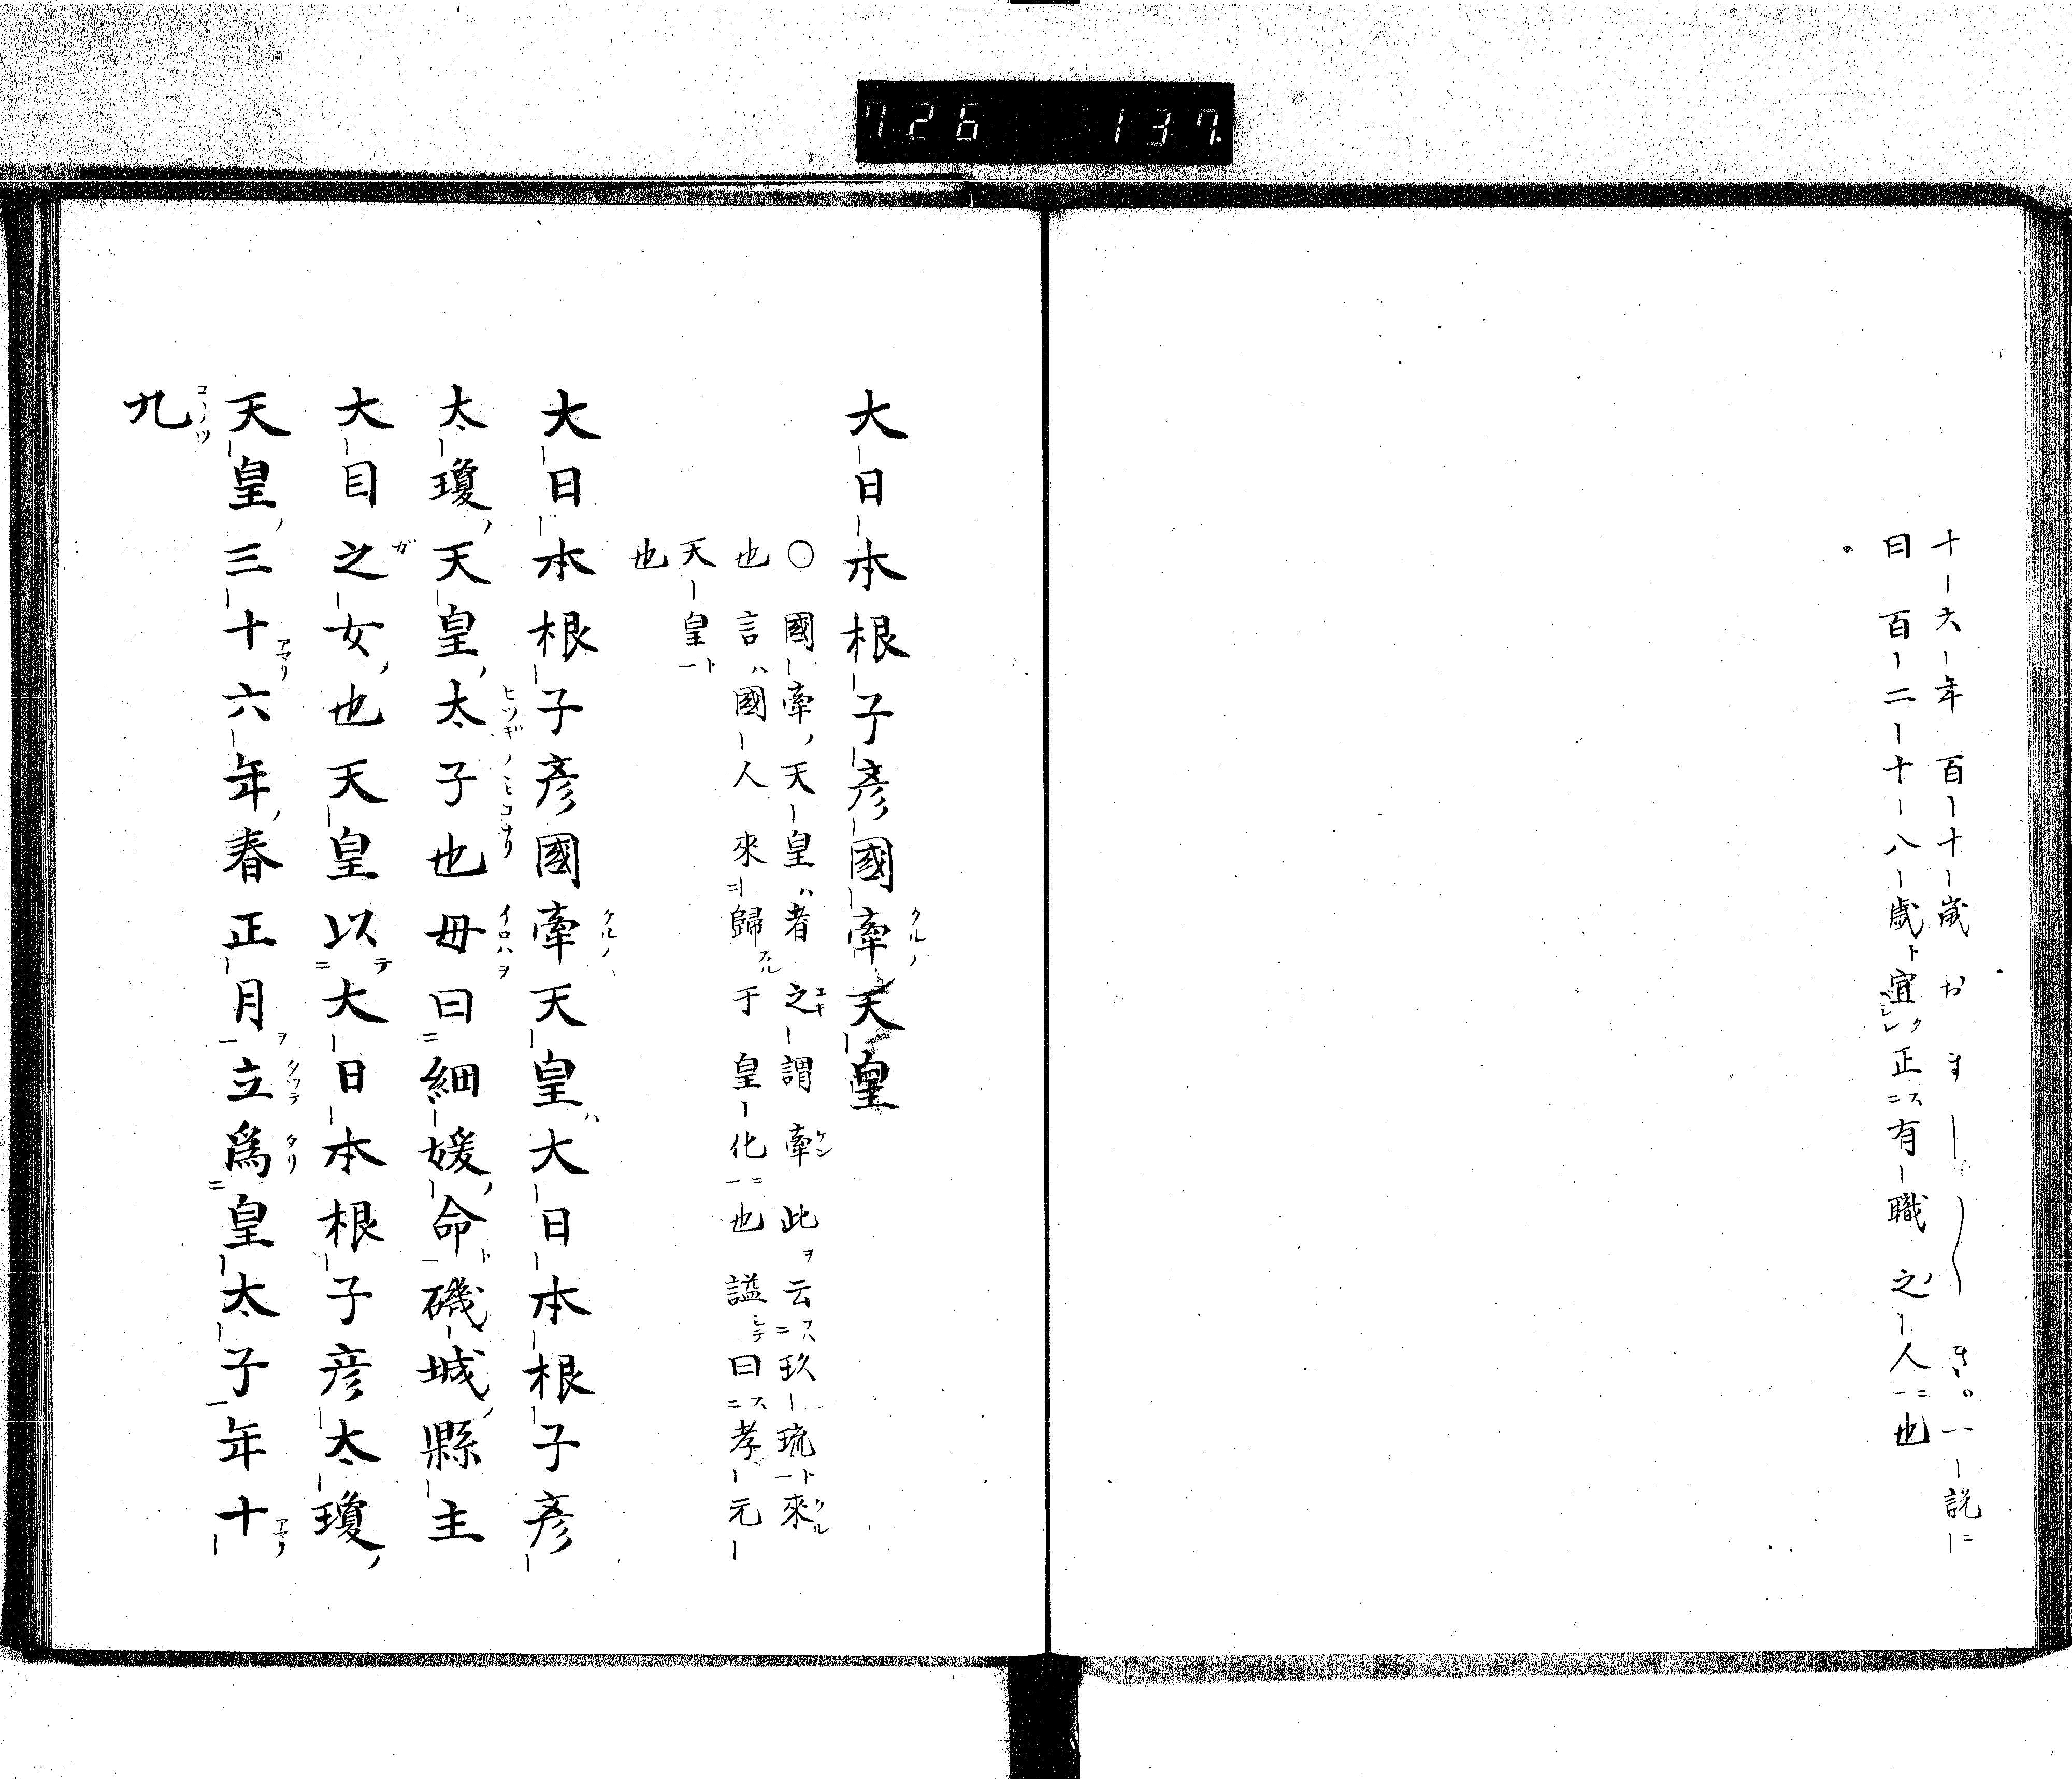 726 137.
十六年百十歳おましゝき。一説に
曰百二十八歳ト宜ク正ス有職之人ニ也
大日本根子彦國牽天皇
○國牽ノ天皇ハ者之謂牽此ヲ云ス玖琉ト來
也言ハ國人來歸于皇化ニ也謚曰ス孝元
天皇ト
也
大日本根子彦國牽天皇ハ大日本根子彦
太瓊ノ天皇ノ太子也母曰細媛ノ命ト磯城ノ縣主
大目之女ノ也天皇以テ大日本根子彦太瓊ノ
天皇ノ三十六年ノ春正月ヲ立爲皇太子年十
九